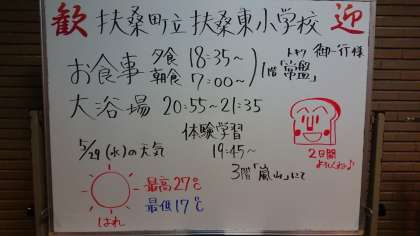 歓 扶桑町立 扶桑東小学校 迎
御一行様
お食事 夕食 18:35~
朝食 7:00~
1階「常盤」
大浴場 20:55~21:35
体験学習
5/29(水)の天気
19:45~
3階「嵐山」にて
最高27℃
最低17℃
はれ
2日間
よろしくね♪